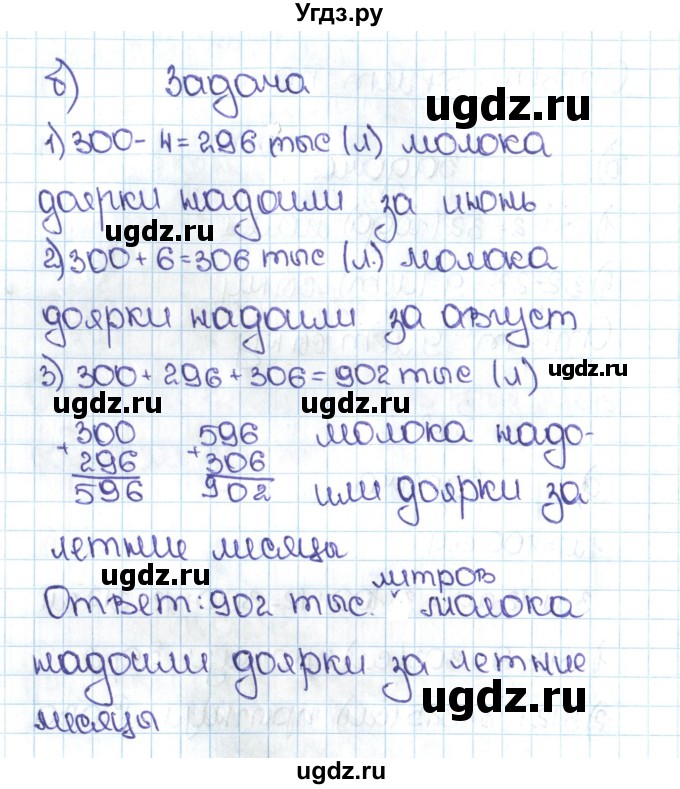 Угдз.ру
б) Задача
ugdz.ru
1) 300 - 4 = 296 тыс (л) молока
доярки надоили за июнь
ugdz.ru
2) 300 + 6 = 306 тыс (л.) молока
доярки надоили за август
3) 300 + 296 + 306 = 902 тыс (л)
ugdz.ru
ugdz.ru ugdz.ru
300 596 молока надо-
+ 296 + 306
596 902 или доярки за
летние месяцы
ugdz.ru литров
Ответ: 902 тыс. ˅ молока
надоили доярки за летние
ugdz.ru
месяцы
ugdz.ru